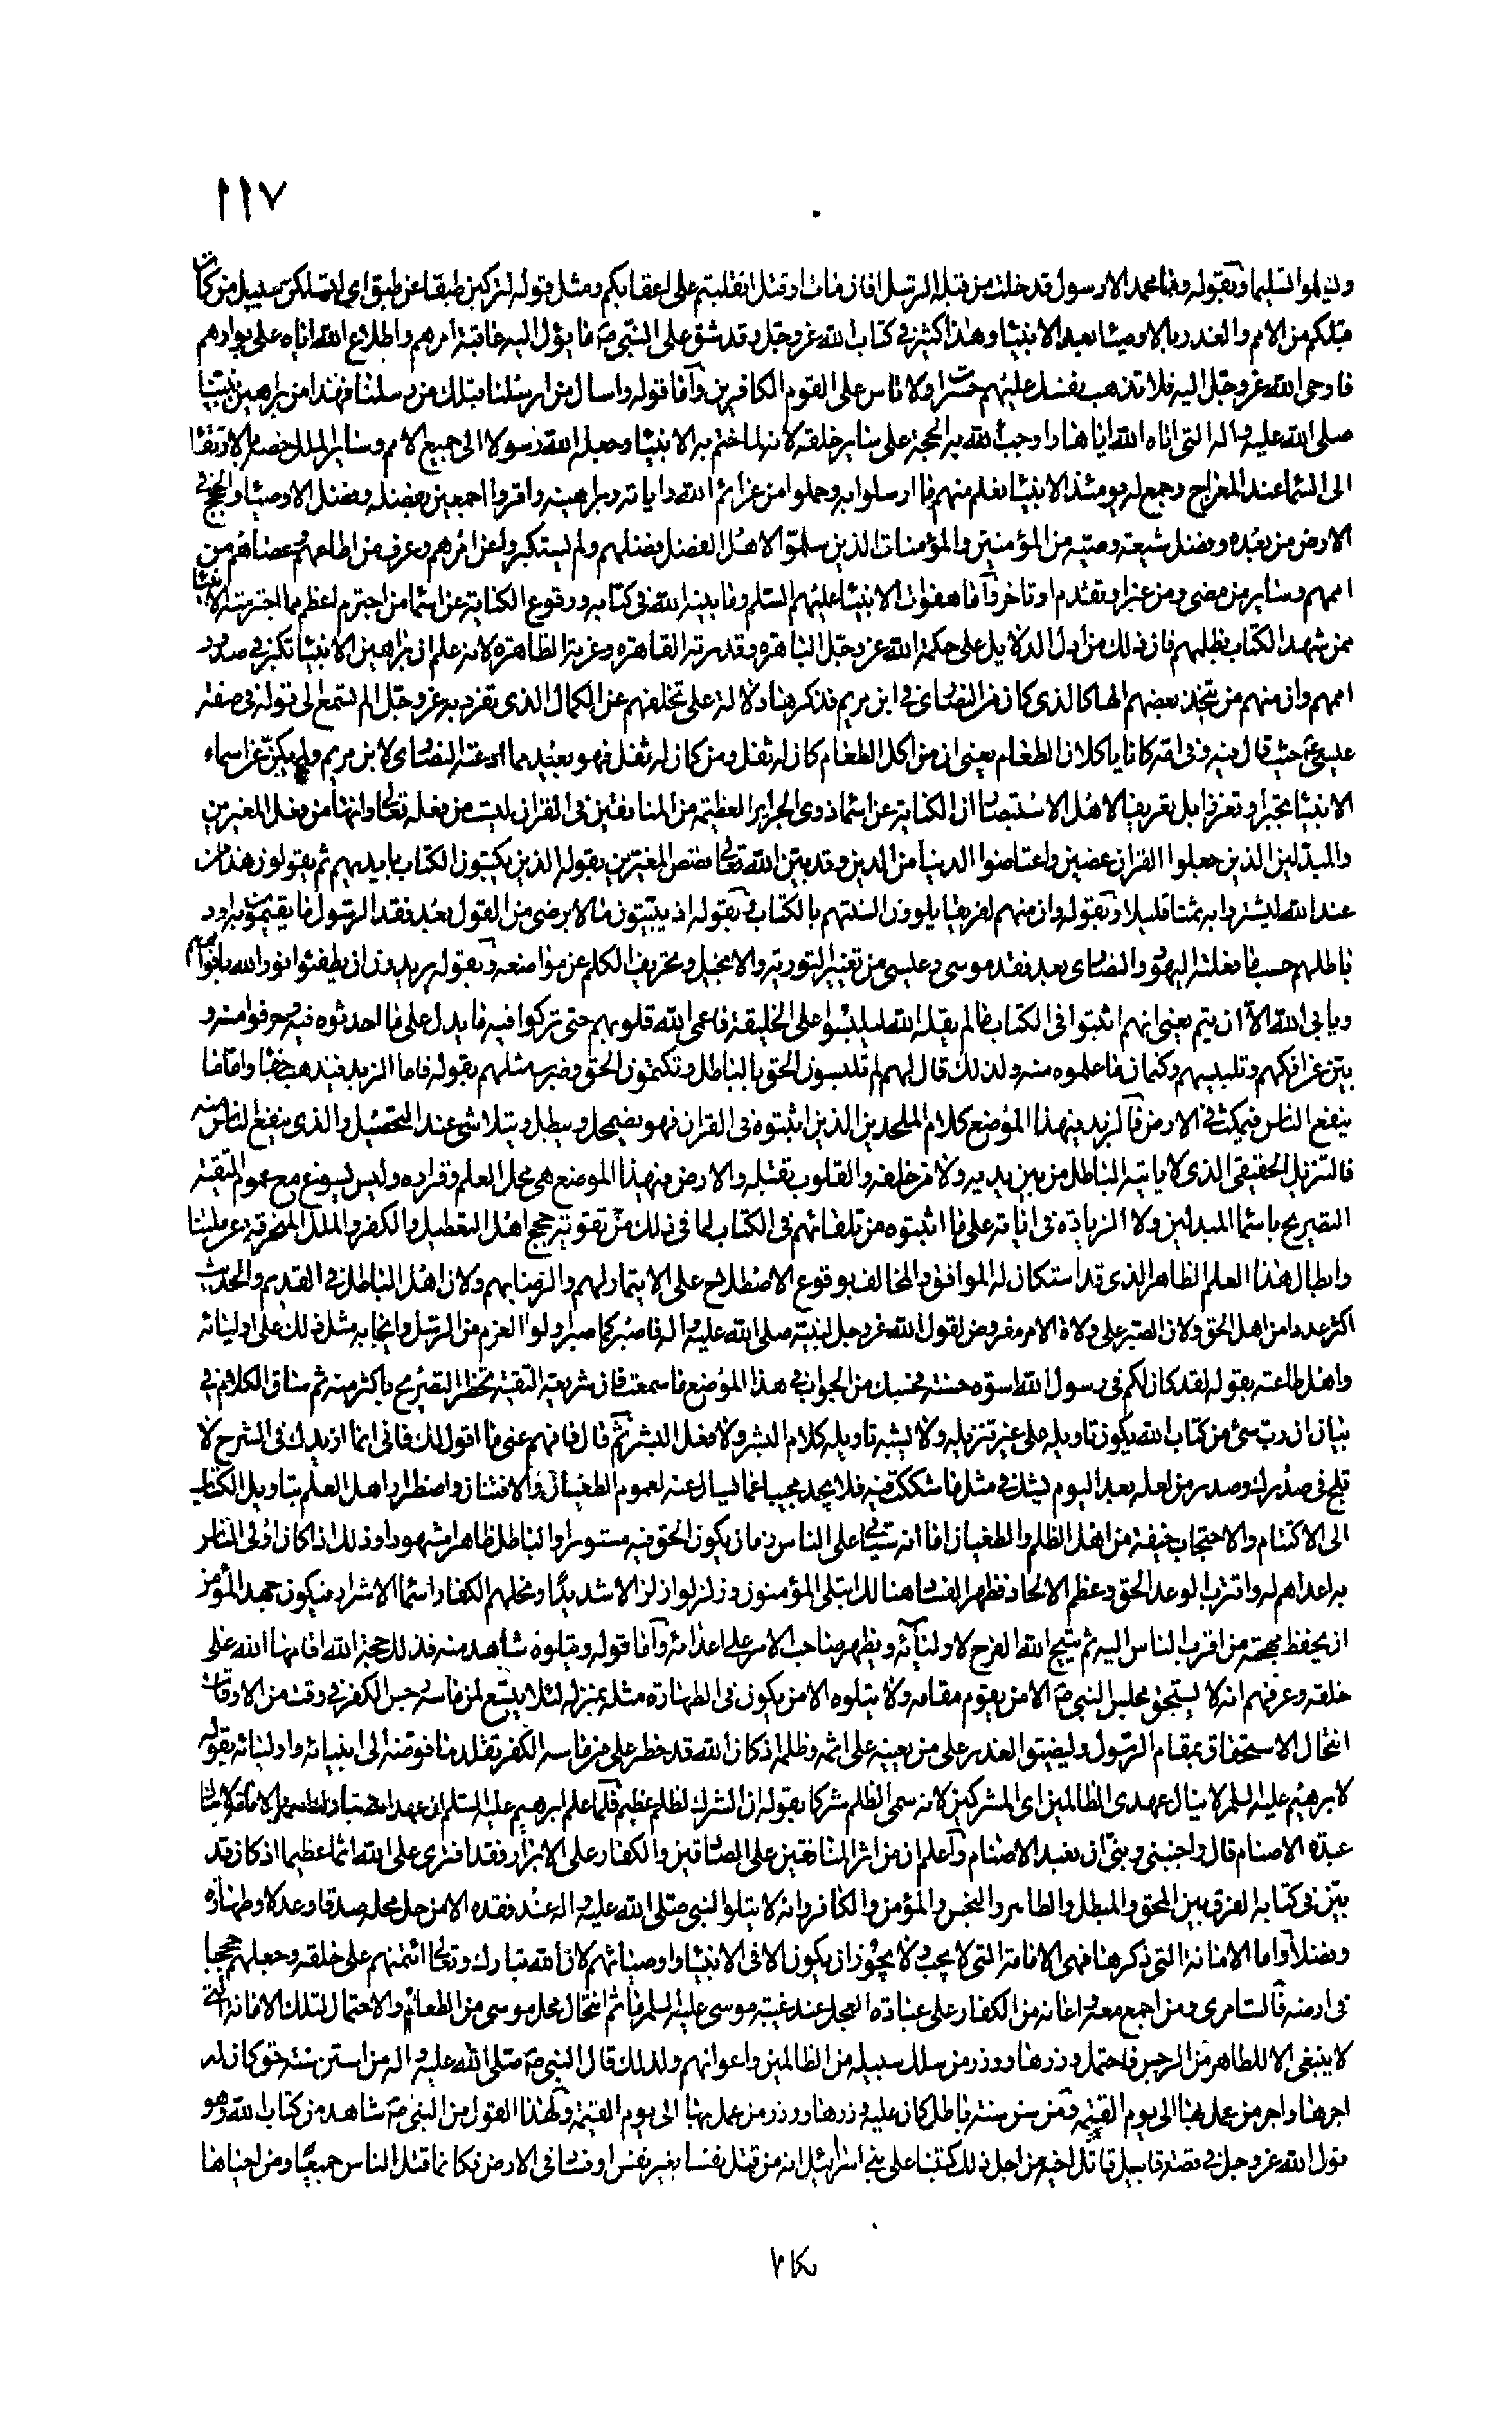 ١١٧
ويسلموا تسليما وبقوله وما محمد الا رسول قد خلت من قبله الرسل افان مات او قتل انقلبتم على اعقابكم ومثل قوله لتركبن طبقا عن طبق اى لتسلكن سبيل من كان
قبلكم من الامم والغدر بالاوصياء بعد الانبياء وهذا كثير فى كتاب الله عز وجل وقد شق على النبى ص ما يؤل اليه عاقبة امرهم واطلاع الله اياه على بوارهم
فاوحى الله عز وجل اليه فلا تذهب نفسك عليهم حسرات ولا تاس على القوم الكافرين واما قوله واسال من ارسلنا قبلك من رسلنا فهذا من براهين نبينا
صلى الله عليه واله التى اتاه الله اياها واوجب الله به الحجة على ساير خلقه لانه لما ختم به الانبياء وجعله الله رسولا الى جميع الامم وساير الملل خصه بالارتقاء
الى السماء عند المعراج وجمع له يومئذ الانبياء فعلم منهم ما ارسلوا به وحملوا من عزائم الله واياته وبراهينه واقروا اجمعين بفضله وفضل الاوصياء والحجج فى
الارض من بعده وفضل شيعة وصيه من المؤمنين والمؤمنات الذين سلموا لاهل الفضل فضلهم ولم يستكبروا عن امرهم وعرف من اطاعهم وعصاهم من
اممهم وساير من مضى ومن غبر او تقدم او تاخر واما هفوات الانبياء عليهم السلم وما بينه الله فى كتابه ووقوع الكناية عن اسماء من اجترم اعظم مما اجترمته الانبياء
ممن شهد الكتاب بظلمهم فان ذلك من ادل الدلايل على حكمة الله عز وجل الباهرة وقدرته القاهرة وعزته الظاهرة لانه علم ان براهين الانبياء تكبر فى صدور
اممهم وان منهم من يتخذ بعضهم الها كالذى كان من النصارى فى ابن مريم فذكرها دلالة على تخلفهم عن الكمال الذى تفرد به عز وجل الم تسمع الى قوله فى صفة
عيسى ع حيث قال فيه وفى امه كانا ياكلان الطعام يعنى ان من اكل الطعام كان له ثفل ومن كان له ثفل فهو بعيد مما ادعته النصارى لابن مريم ولم يكن عن اسماء
الانبياء تجبرا وتعززا بل تعريفا لاهل الاستبصار ان الكناية عن اسماء ذوى الجراير العظيمة من المنافقين فى القران ليست من فعله تعالى وانها من فعل المغيرين
والمبدلين الذين جعلوا القران عضين واعتاضوا الدنيا من الدين وقد بين الله تعالى قصص المغيرين بقوله الذين يكتبون الكتاب بايديهم ثم يقولون هذا من
عند الله ليشتروا به ثمنا قليلا وبقوله وان منهم لفريقا يلوون السنتهم بالكتاب وبقوله اذ يبيتون ما لا يرضى من القول بعد فقد الرسول ما يقيمون به اود
باطلهم حسب ما فعلته اليهود والنصارى بعد فقد موسى وعيسى من تغيير التورية والانجيل وتحريف الكلم عن مواضعه وبقوله يريدون ان يطفئوا نور الله بافواههم
ويابى الله الا ان يتم يعنى انهم اثبتوا فى الكتاب ما لم يقله الله ليلبسوا على الخليقة فاعمى الله قلوبهم حتى تركوا فيه ما يدل على ما احدثوه فيه وحرفوا منه و
بين عن افكهم وتلبيسهم وكتمان ما علموه منه ولذلك قال لهم لم تلبسون الحق بالباطل وتكتمون الحق وضرب مثلهم بقوله فاما الزبد فيذهب جفاء واما ما
ينفع الناس فيمكث فى الارض فالزبد فى هذا الموضع كلام الملحدين الذين اثبتوه فى القران فهو يضمحل ويبطل ويتلاشى عند التحصيل والذى ينفع الناس منه
فالتنزيل الحقيقى الذى لا ياتيه الباطل من بين يديه ولا من خلفه والقلوب تقبله والارض فى هذا الموضع هى محل العلم وقراره وليس يسوغ مع عموم التقية
التصريح باسماء المبدلين ولا الزيادة فى اياته على ما اثبتوه من تلقائهم فى الكتاب لما فى ذلك من تقوية حجج اهل التعطيل والكفر والملل المنحرفة عن ملتنا
وابطال هذا العلم الظاهر الذى قد استكان له الموافق والمخالف بوقوع الاصطلاح على الايتمار لهم والرضا بهم ولان اهل الباطل فى القديم والحديث
اكثر عددا من اهل الحق ولان الصبر على ولاة الامر مفروض لقول الله عز وجل لنبيه صلى الله عليه واله فاصبر كما صبر اولوا العزم من الرسل وايجابه مثل ذلك على اوليائه
واهل طاعته بقوله لقد كان لكم فى رسول الله اسوة حسنة فحسبك من الجواب فى هذا الموضع ما سمعت فان شريعة التقية تحظر التصريح باكثر منه ثم ساق الكلام فى
بيان ان رب شىء من كتاب الله يكون تاويله على غير تنزيله ولا يشبه تاويله كلام البشر ولا فعل البشر ثم قال فافهم عنى ما اقول لك فانى انما ازيدك فى الشرح لا
ثلج فى صدرك وصدر من لعله بعد اليوم يشك فى مثل ما شككت فيه فلا يجد مجيبا عما يسال عنه لعموم الطغيان والافتتان واضطرار اهل العلم بتاويل الكتاب
الى الاكتتام والاحتجاب خيفة من اهل الظلم والطغيان اما انه سياتى على الناس زمان يكون الحق فيه مستورا والباطل ظاهرا مشهودا وذلك اذا كان اولى الناس
به اعداهم له واقترب الوعد الحق وعظم الالحاد وظهر الفساد هنالك ابتلى المؤمنون وزلزلوا زلزالا شديدا ونحلهم الكفار اسماء الاشرار فيكون جهد المؤمن
ان يحفظ مهجته من اقرب الناس اليه ثم يتيح الله الفرج لاوليائه ويظهر صاحب الامر على اعدائه واما قوله ويتلوه شاهد منه فذلك حجة الله اقامها الله على
خلقه وعرفهم انه لا يستحق مجلس النبى ص الا من يقوم مقامه ولا يتلوه الا من يكون فى الطهارة مثله بمنزلته لئلا يتسع لمن ماسه رجس الكفر فى وقت من الاوقات
انتحال الاستحقاق بمقام الرسول وليضيق العذر على من يعينه على اثمه وظلمه اذ كان الله قد حظر على من ماسه الكفر تقلد ما فوضه الى انبيائه واوليائه بقوله
لابرهيم عليه السلم لا ينال عهدى الظالمين اى المشركين لانه سمى الظلم شركا بقوله ان الشرك لظلم عظيم فلما علم ابرهيم عليه السلم ان عهد الله تبارك اسمه بالامامة لا ينال
عبدة الاصنام قال واجنبنى وبنى ان نعبد الاصنام واعلم ان من اثر المنافقين على الصادقين والكفار على الابرار فقد افترى على الله اثما عظيما اذ كان قد
بين فى كتابه الفرق بين المحق والمبطل والطاهر والنجس والمؤمن والكافر وانه لا يتلوا النبى صلى الله عليه واله عند فقده الا من حل محله صدقا وعدلا وطهارة
وفضلا واما الامانة التى ذكرها فهى الامانة التى لا يجب ولا يجوز ان يكون الا فى الانبياء واوصيائهم لان الله تبارك وتعالى ائتمنهم على خلقه وجعلهم حججا
فى ارضه فالسامرى ومن اجمع معه واعانه من الكفار على عبادة العجل عند غيبة موسى عليه السلم ما تم انتحال محل موسى من الطغام والاحتمال لتلك الامانة التى
لا ينبغى الا للطاهر من الرجس فاحتمل وزرها ووزر من سلك سبيله من الظالمين واعوانهم ولذلك قال النبى ص صلى الله عليه واله من استن سنة حق كان له
اجرها واجر من عمل بها الى يوم القيمة ومن سن سنة باطل كان عليه وزرها ووزر من عمل بها الى يوم القيمة ولهذا القول من النبى ص شاهد من كتاب الله وهو
قول الله عز وجل فى قصة قابيل قاتل اخيه من اجل ذلك كتبنا على بنى اسرائيل انه من قتل نفسا بغير نفس او فساد فى الارض فكانما قتل الناس جميعا ومن احياها